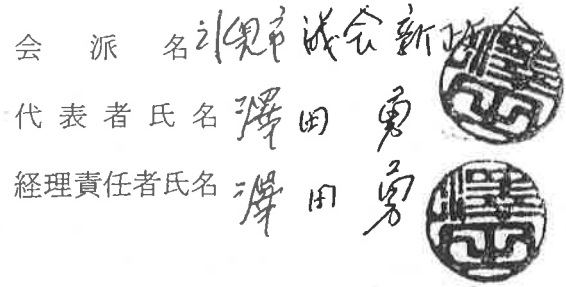 会派名 氷見市議会新政会
代表者氏名 澤田 勇
経理責任者氏名 澤田 勇
澤田
澤田